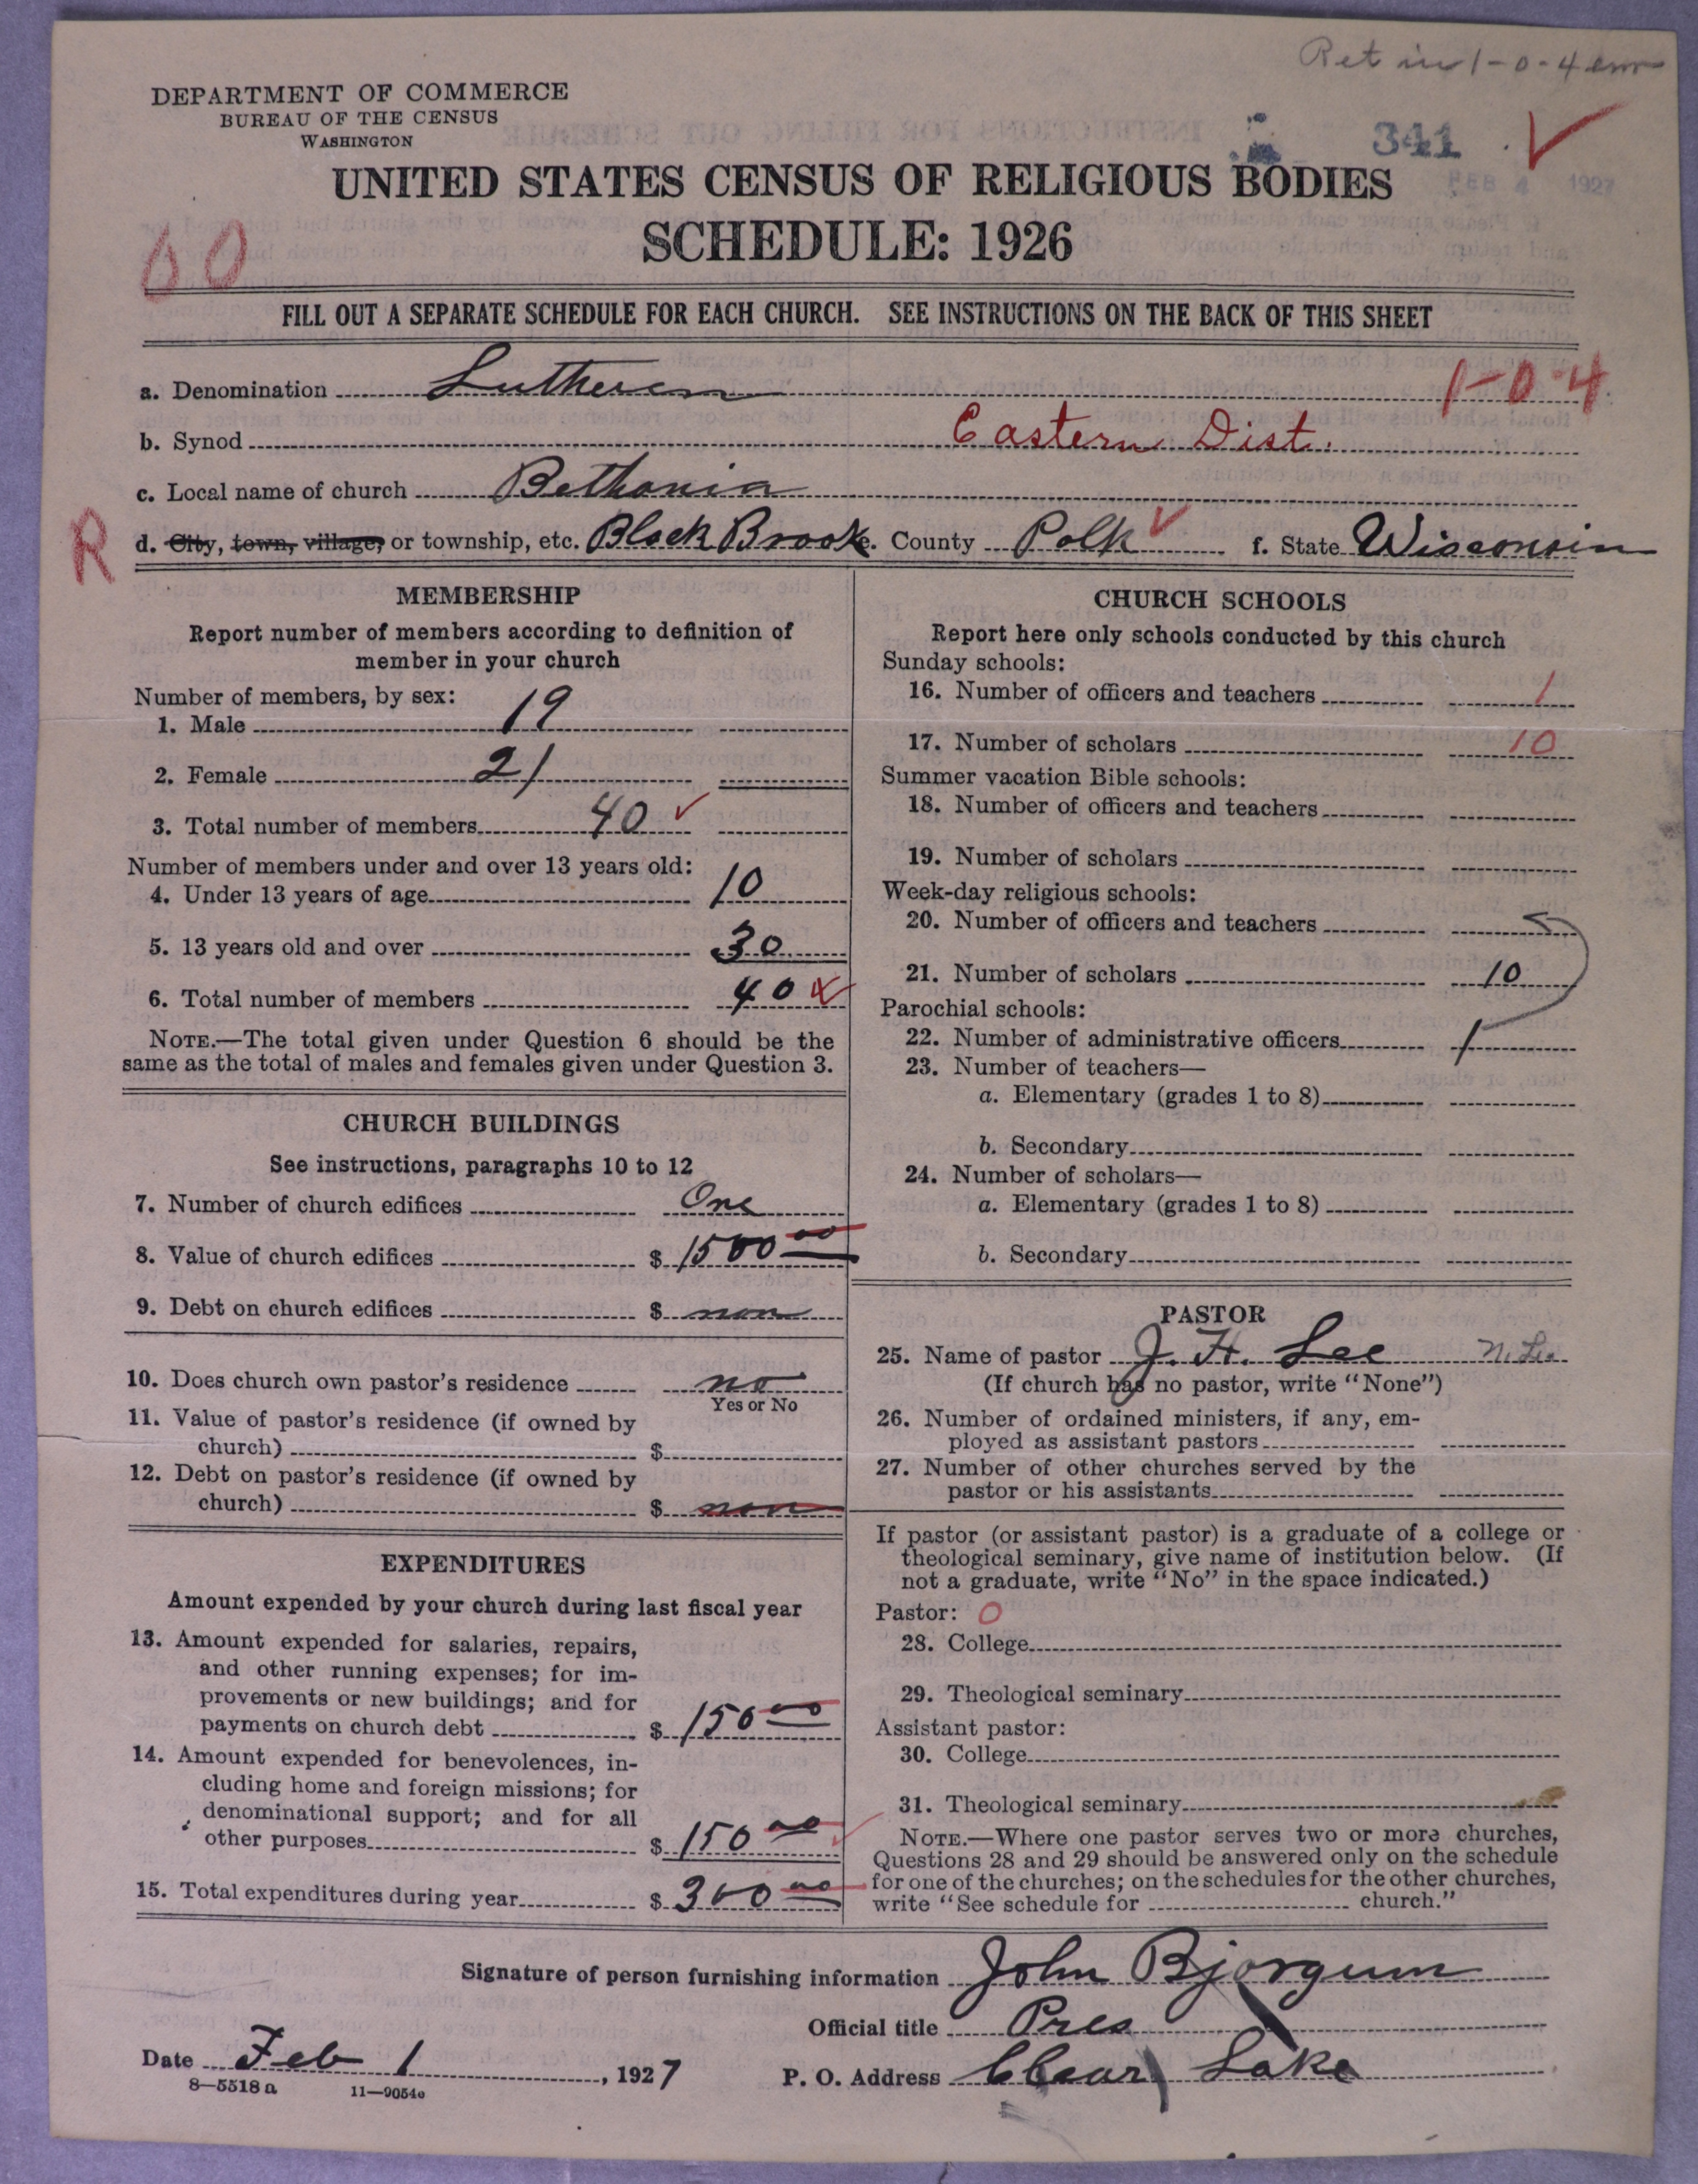 Ret in 1-0-4
DEPARTMENT OF COMMERCE
BUREAU OF THE CENSUS
WASHINGTON
341
FEB 4 1927
UNITED STATES CENSUS OF RELIGIOUS BODIES
SCHEDULE: 1926
60
FILL OUT A SEPARATE SCHEDULE FOR EACH CHURCH. SEE INSTRUCTIONS ON THE BACK OF THIS SHEET
a. Denomination Lutheren 1-0-4
b. Synod Eastern Dist.
c. Local name of church Bethania
R
d. City, town, village, or township, etc. Black Brook e. County Polk f. State Wisconsin
MEMBERSHIP
Report number of members according to definition of
member in your church
Number of members, by sex:
1. Male 19
2. Female 21
3. Total number of members 40
Number of members under and over 13 years old:
4. Under 13 years of age 10
5. 13 years old and over 30
6. Total number of members 40
NOTE.—The total given under Question 6 should be the
same as the total of males and females given under Question 3.
CHURCH BUILDINGS
See instructions, paragraphs 10 to 12
7. Number of church edifices One
8. Value of church edifices $ 1500 00
9. Debt on church edifices $ non
10. Does church own pastor's residence no
Yes or No
11. Value of pastor's residence (if owned by
church) $
12. Debt on pastor's residence (if owned by
church) $ non
EXPENDITURES
Amount expended by your church during last fiscal year
13. Amount expended for salaries, repairs,
and other running expenses; for im-
provements or new buildings; and for
payments on church debt $ 150 00
14. Amount expended for benevolences, in-
cluding home and foreign missions; for
denominational support; and for all
other purposes $ 150 00
15. Total expenditures during year $ 300 00
CHURCH SCHOOLS
Report here only schools conducted by this church
Sunday schools:
16. Number of officers and teachers 1
17. Number of scholars 10
Summer vacation Bible schools:
18. Number of officers and teachers
19. Number of scholars
Week-day religious schools:
20. Number of officers and teachers
21. Number of scholars 10
Parochial schools:
22. Number of administrative officers 1
23. Number of teachers—
a. Elementary (grades 1 to 8)
b. Secondary
24. Number of scholars—
a. Elementary (grades 1 to 8)
b. Secondary
PASTOR
25. Name of pastor J. H. Lee
(If church has no pastor, write "None")
26. Number of ordained ministers, if any, em-
ployed as assistant pastors
27. Number of other churches served by the
pastor or his assistants
If pastor (or assistant pastor) is a graduate of a college or
theological seminary, give name of institution below. (If
not a graduate, write "No" in the space indicated.)
Pastor: 0
28. College
29. Theological seminary
Assistant pastor:
30. College
31. Theological seminary
NOTE.—Where one pastor serves two or more churches,
Questions 28 and 29 should be answered only on the schedule
for one of the churches; on the schedules for the other churches,
write "See schedule for church."
Signature of person furnishing information John Bjorgum
Official title Pres
Date Feb 1, 1927
P. O. Address Clear Lake
8—5518 a 11—9054e